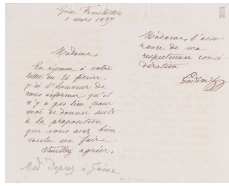 1 mars 1887
Madame,
En réponse à votre
lettre du 25 février,
j'ai l'honneur de
vous informer qu'il
n'y a pas lieu pour
moi de donner suite
à la proposition
que vous avez bien
voulu me faire.
Veuillez agréer,
Madame, l'assu-
rance de ma
respectueuse consi-
dération